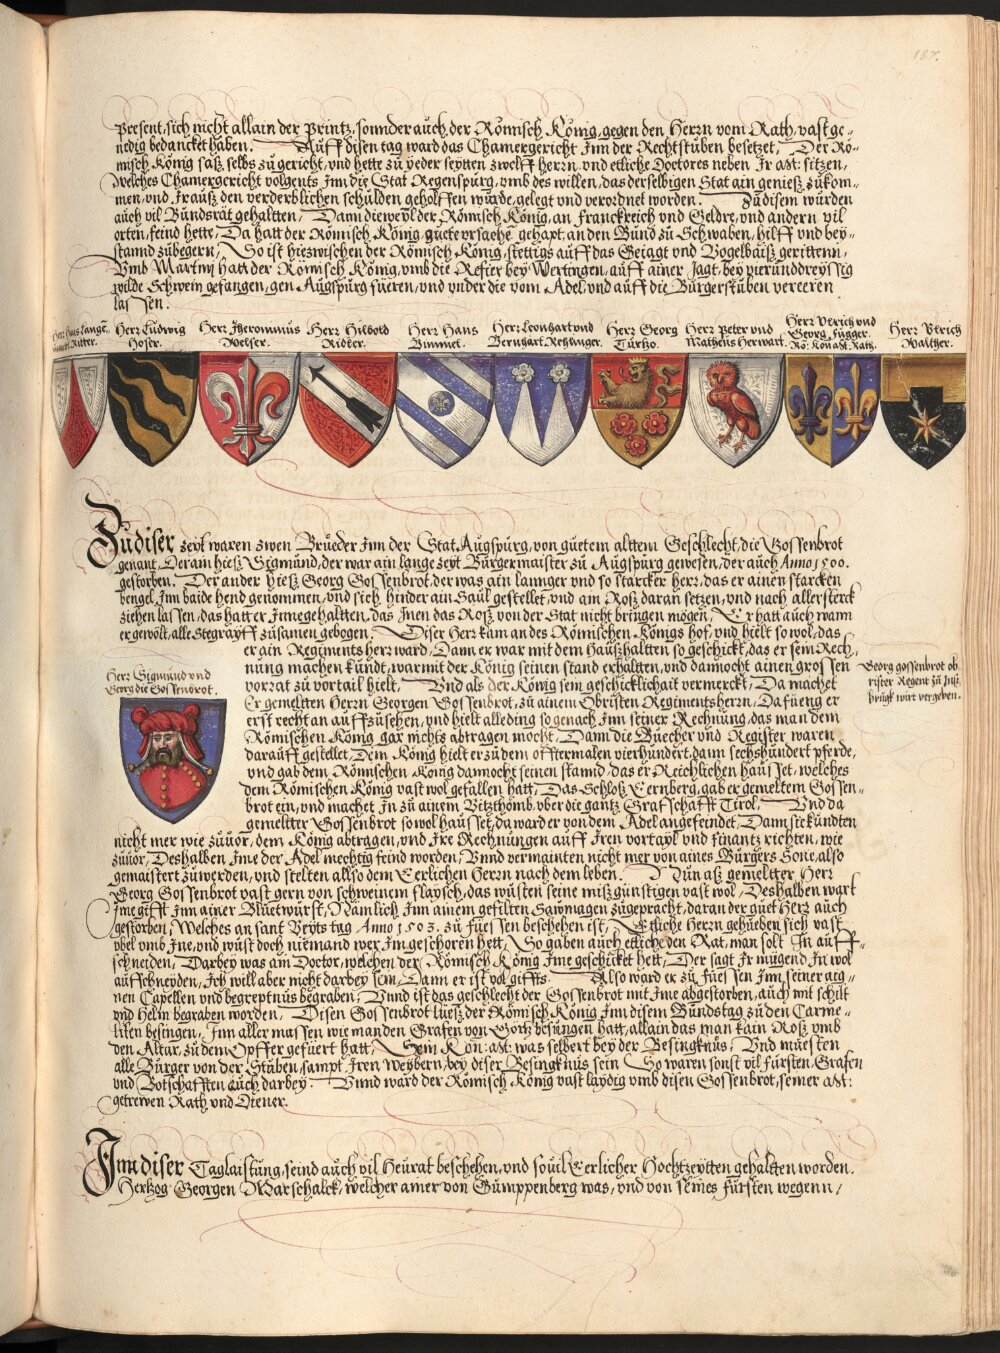 187.
present, sich nicht allain der Printz, sonnder auch, der Römisch König, gegen den Herrn vom Rath, vast ge-
nedig bedancket haben. Auff disen tag ward das Chamergericht Inn der Rechtstuben besetzet, Der Rö-
misch König sasz selbs zu gericht, vnd hette zu yeder seytten zwelff herrn, vnd etliche Doctores neben Ir Mt: sitzen,
welches Chamergericht volgents Inn die Stat Regenspurg, vmb des willen, das derselbigen Stat ain geniesz zukom-
men, vnd Ir ausz den verderblichen schulden geholffen wurde, gelegt vnd verordnet worden. Zu disem wurden
auch vil Bundsrät gehaltten, Dann dieweyl der Römisch König, an Franckreich vnd Geldre, vnd andern vil
orten, feind hette, Da hatt der Römisch König, guete vrsache gehapt, an den Bund zu Schwaben, hilff vnd bey-
stannd zubegern, So ist hiezwischen der Römisch König, stettigs auff das Geiagt vnd Vogelbaisz gerittenn,
Vmb Martinj hatt der Römisch König, vmb die Refier bey Wertingen, auff ainer Jagt, bey vierunddreyssig
wilde Schwein gefangen, gen Augspurg fueren, vnd vnder die vom Adel, vnd auff die Burgerstuben vereeren
lassen.
Herr Hans Lange-
Ritter.
Herr Ludwig
Hoser.
Herr Iheronimus
Welser.
Herr Hilbold
Ridler.
Herr Hans
Bimmel.
Herr Leonhart vnd
Bernhart Rehlinger.
Herr Georg
Turzo.
Herr Peter vnd
Matheus Herwart.
Herr Vlrich vnd
Georg Fugger.
Rö: Kön: Mt. Räth.
Herr Vlrich
Walther.
Zu diser zeyt waren zwen Brueder Inn der Stat Augspurg, von guetem alttem Geschlecht, die Gossenbrot
genant, Der ain hiesz Sigmund, der war ain lange zeyt Burgermaister zu Augspurg gewesen, der auch Anno 1500.
gestorben. Der ander hiesz Georg Gossenbrot, der was ain lannger vnd so starcker herr, das er ainen starcken
bengel, Inn baide hend genomen, vnd sich, hinder ain Gaul gestellet, vnd am Rosz daran setzen, vnd nach allersterck
ziehen lassen, das hatt er Innegehaltten, das Inen das Rosz von der Stat nicht bringen mögen, Er hatt auch wann
er gewölt, alle Stegrayff zusamen gebogen. Diser Herr kam an des Römischen Königs hof, vnd hielt so wol, das
er ain Regiments herr ward, Dann er war mit dem Hauszhaltten so geschickt, das er sein Rech-
nung machen kundt, warmit der König seinen stand erhaltten, vnd dannocht ainen grossen
vorrat zu vortail hielt, Vnd als der König sein geschicklichait vermerckt, Da machet
Er gemeltten Herrn Georgen Gossenbrot, zu ainem Obristen Regimentsherrn, Da fueng er
erst recht an auffzusehen, vnd hielt alleding so genach Inn seiner Rechnung, das man dem
Römischen König gar nichts abtragen mocht, Dann die Buecher vnd Register waren
darauff gestellet, Dem König hielt er zu dem offtermalen vierhundert, dann sechshundert pferde,
vnd gab dem Römischen König dannocht seinen stannd, das er Reichlichen hauset, welches
dem Römischen König vast wol gefallen hatt, Das Schlosz Ernberg, gab er gemeltem Gossen-
brot ein, vnd machet In zu ainem Vitzthomb, vber die gantz Grafschafft Tirol, Vnd da
gemeltter Gossenbrot so wol hauset, da ward er von dem Adel angefeindet, Dann sie kundten
nicht mer wie zuuor, dem König abtragen, vnd Ire Rechnungen auff Iren vortayl vnd finantz richten, wie
zuuor, Deshalben Ime der Adel mechtig feind worden, Vnnd vermainten nicht mer von aines Burgers Sone, also
gemaistert zuwerden, vnd stelten allso dem Eerlichen Herrn nach dem leben. Nun asz gemeltter Herr
Georg Gossenbrot vast gern von schweinem flaysch, das wusten seine misz gunstigen vast wol, Deshalben wart
Ime gifft Inn ainer Bluetwurst, Nämlich Inn ainem gefilten Sawmagen zugepracht, daran der guet Herr auch
gestorben, Welches an sant Veyts tag Anno 1503. zu Fuessen beschehen ist, Etliche Herrn gehueben sich vast
vbel vmb Ine, vnd wust doch niemand wer Im geschoren hett, So gaben auch etliche den Rat, man solt In auff-
schneiden, Darbey was am Doctor, welchen der Römisch König Ime geschicket hett, Der sagt Ir mugend In wol
auffschneyden, Ich will aber nicht darbey sein, Dann er ist vol giffts. Also ward er zu Fuessen Inn seiner aig-
nen Capellen vnd begreptnus begraben, Vnnd ist das geschlecht der Gossenbrot mit Ime abgestorben, auch mit schilt
vnd Helm begraben worden, Disen Gossenbrot luesz der Römisch König Inn disem Bundstag zu den Carme-
liten besingen, Inn aller massen wie man den Grafen von Görtz besungen hatt, allain das man kain Rosz vmb
den Altar, zu dem Opffer gefuert hatt, Sein Kön: Mt: was selbert bey der Besingknus, Vnd muesten
alle Burger von der Stuben, sampt Iren Weybern, bey diser Besingknus sein, So waren sonst vil Fursten, Grafen
vnd Botschafften auch darbey. Vnnd ward der Römisch König vast laydig vmb disen Gossenbrot, seiner Mt:
getrewen Rath vnd Diener.
Herr Sigmund vnd
Georg die Gossenbrot.
Georg gossenbrot ob
rister Regent zu Ins-
brugk wirt vergeben.
Inn diser Taglaistung, seind auch vil Heurat beschehen, vnd souil Eerlicher Hochtzeytten gehaltten worden.
Hertzog Georgen Marschalck, welcher ainer von Gumppenberg was, vnd von seines Fursten wegenn,